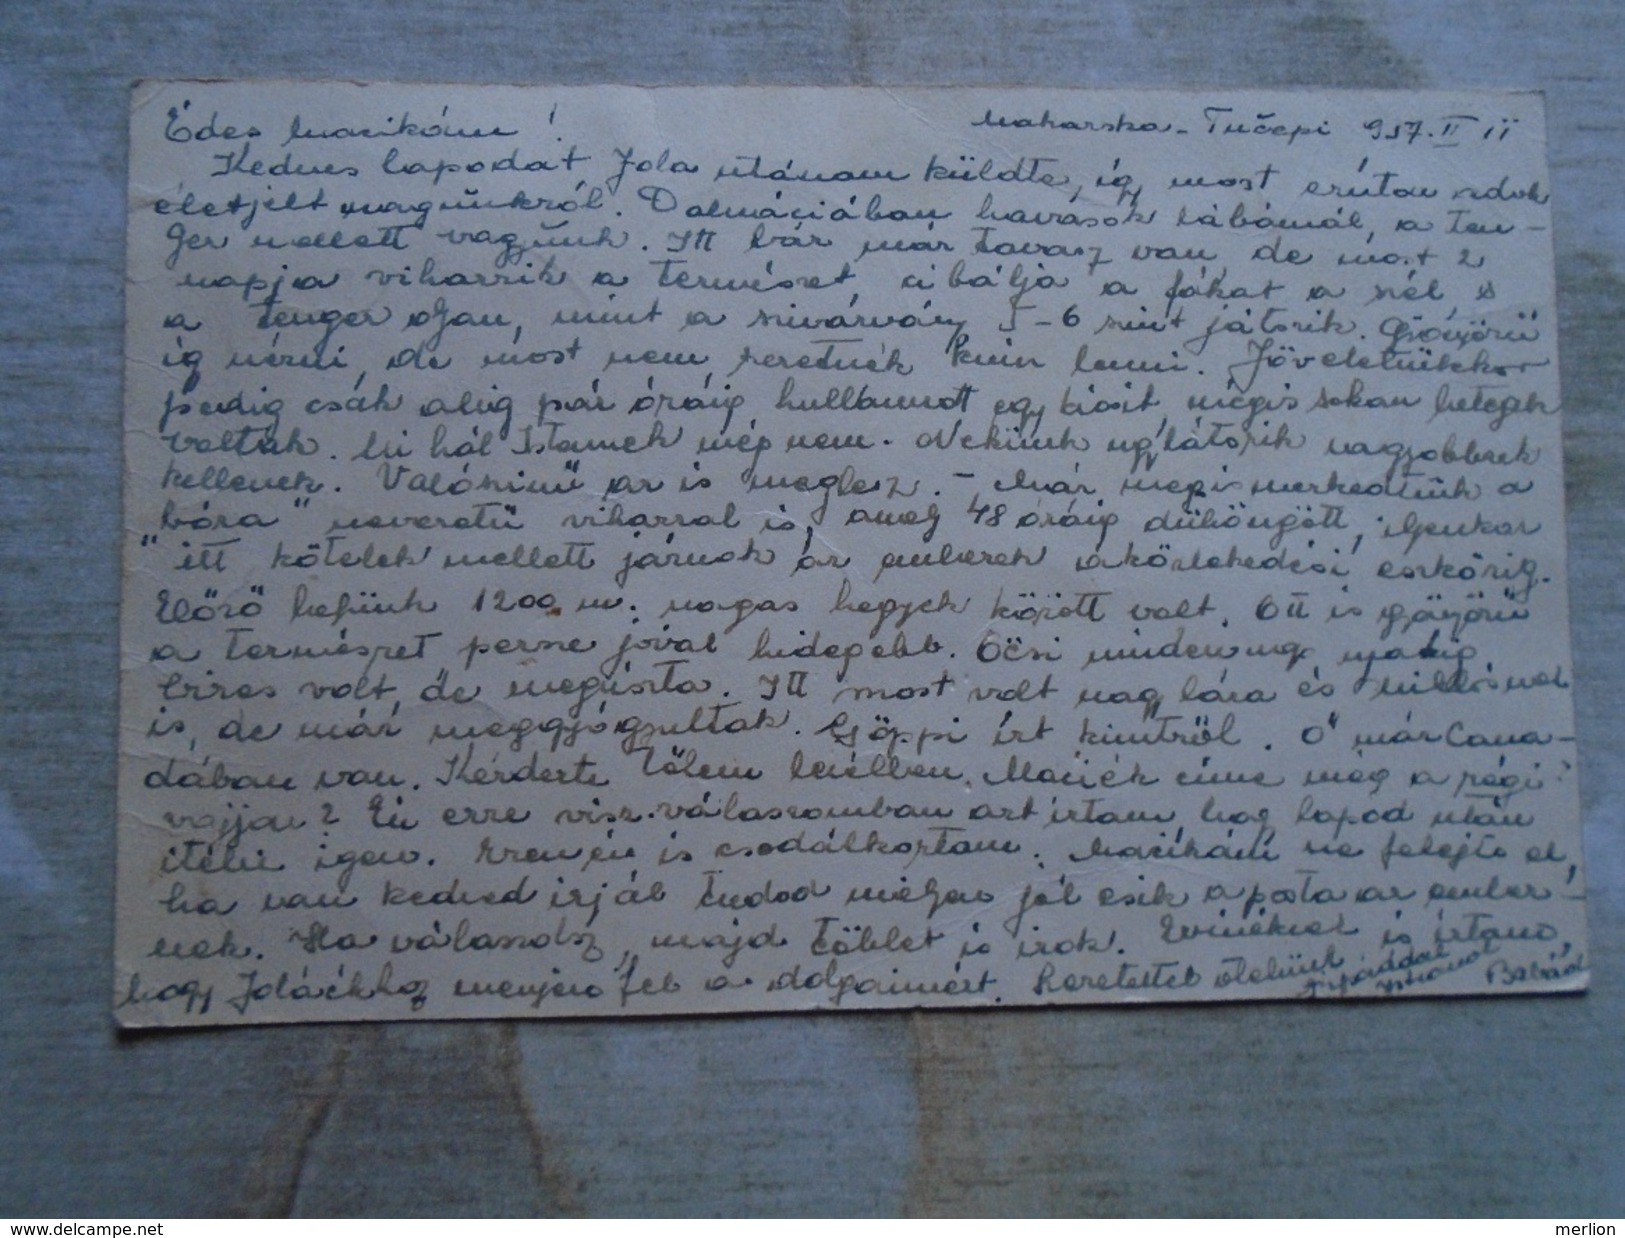 Édes Macikám! Makarska - Tučepi 957.II 11
Kedves lapodat Jola utánam küldte, így most erúton adok
életjelt magunkról. Dalmáciában havasok lábánál, a ten-
ger mellett vagyunk. Itt bár már tavasz van de most 2
napja viharzik a természet, cibálja a fákat a szél, s
a tenger olyan, mint a szivárvány 5-6 szint játszik. Gyönyörü
így nézni, de most nem szeretnék kuin lenni. Jövetelünkkor
pedig csak alig pár óráig hullámzott egy kicsit, mégis sokan betegek
voltak. Mi hál Istennek még nem. Nekünk ugylátszik nagyobbak
kellenek. Valószinü az is meglesz. - Már megismerkedtünk a
"bóra" nevezetü viharral is, amely 48 óráig dühöngött, ilyenkor
itt kötelek mellett járnak az emberek a közlekedési eszközig.
Előző helyünk 1200 m. magas hegyek között volt. Ott is gyönyörü
a természet persze jóval hidegebb. Öcsi minden nap nyakig
vizes volt, de megúszta. Itt most volt nagy láza és Miklósnak
is, de már meggyógyultak. Göppi írt kintről. Ő már Cana-
dában van. Kérdezte tőlem levélben, Maciék címe még a régi
vajjon? Én erre viszválaszomban azt írtam, hogy lapod után
itélve igen. Ezen én is csodálkoztam. Macikám ne felejts el,
ha van kedved irjál tudod milyen jól esik a posta az ember-
nek. Ha válaszolsz, majd többet is irok. Evinéknek is írtam,
hogy Joláékhoz menjen fel a dolgaimért. Szeretettel ölelünk
Árpáddal
Istvánnal
Babád
www.delcampe.net
merlion